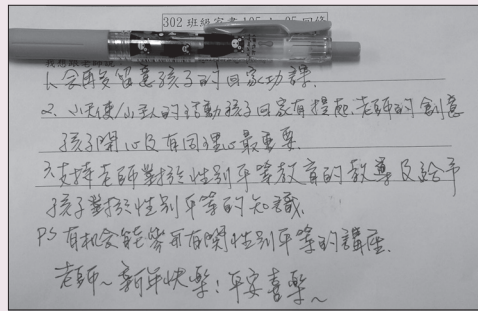 302 班級家書 105.1.25 回條
1. 會再多留意孩子的回家功課.
2. 小天使/小主人的活動孩子回家有提起.老師的創意
孩子開心及有同理心最重要.
3.支持老師對於性別平等教育的教導及給予
孩子對於性別平等的知識.
PS 有机会能參與有關性別平等的講座.
老師~新年快樂!平安喜樂~